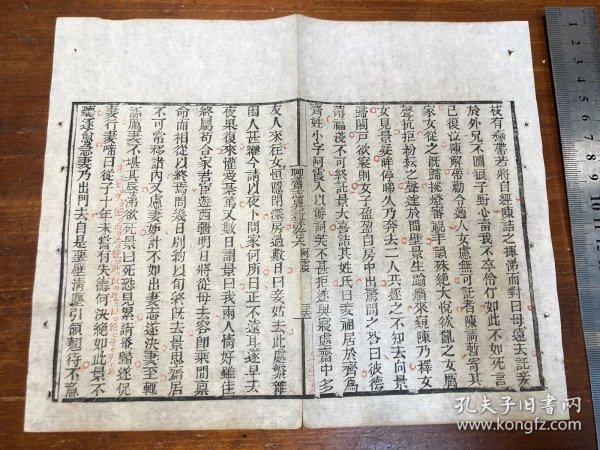 枝有繩帶若將自經陳詰之揮涕而對曰母遠去託妾
於外兄不圖狼子野心畜我不卒伶仃如此不如死言
已復泣陳解帶勸令適人女慮無可託者陳請暫寄其
家女從之旣歸挑燈審視丰韻殊絕大悅欲亂之女厲
聲抗拒紛紜之聲達於間壁景生踰牆來窺陳乃釋女
女見景凝眸停睇久乃奔去二人共逐之不知去向景
歸闔戶欲寢則女子盈盈自房中出驚問之答曰彼德
薄福淺不可終託景大喜詰其姓氏曰妾祖居於齊爲
齊姓小字阿霞入以游詞笑不甚拒遂與寢處齋中多
聊齋志異卷六 阿霞
友人來往女恒隱閉深房過數日曰妾姑去此處煩雜
困人甚繼今請以夜卜問家何所曰正不遠耳遂早去
夜果復來懽愛綦篤又數日謂景曰我兩人情好雖佳
終屬苟合家君宦遊西疆明日將從母去容卽乘間稟
命而相從以終焉問幾日別約以旬終旣去景思齋居
不可常移諸內又慮妻妒計不如出妻志遂決妻至輒
詬厲妻不堪其辱涕欲死景曰死恐見累請蚤歸遂促
妻行妻啼曰從子十年未嘗有失德何決絕如此景不
聽逐愈急妻乃出門去自是堊壁清塵引領翹待不意
孔夫子旧书网
www.kongfz.com